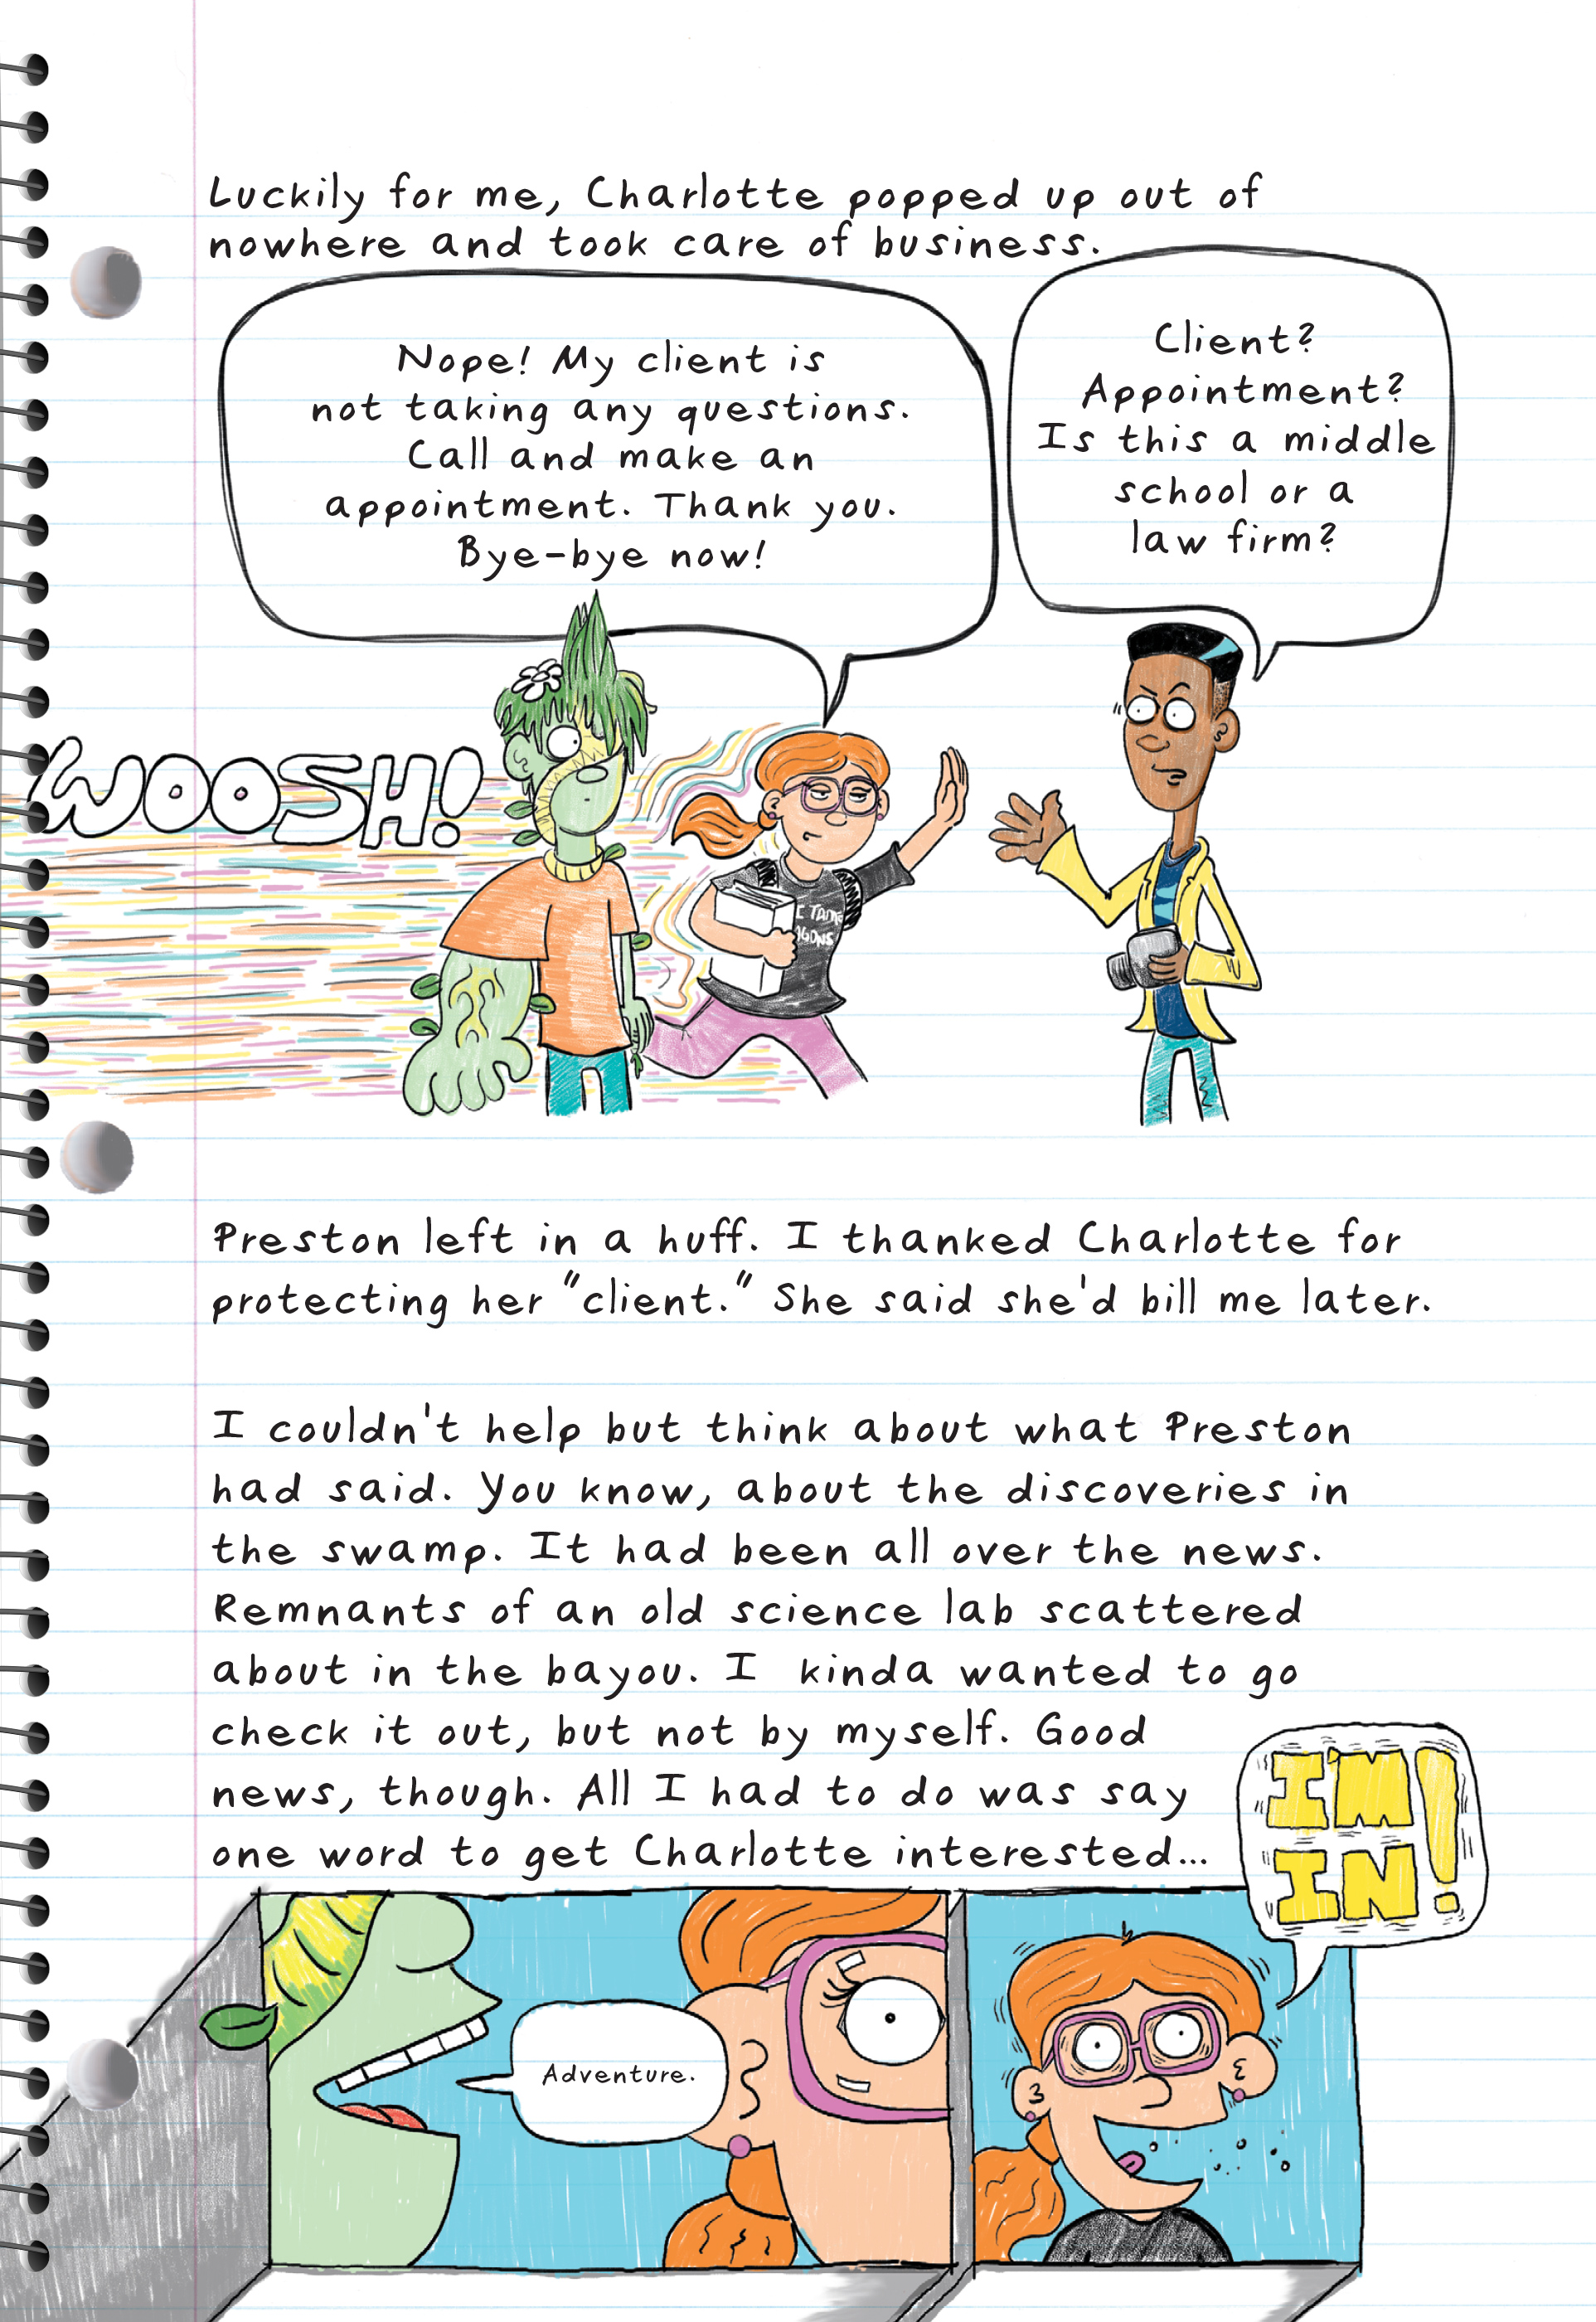 Luckily for me, Charlotte popped up out of
nowhere and took care of business.
Nope! My client is
not taking any questions.
Call and make an
appointment. Thank you.
Bye-bye now!
Client?
Appointment?
Is this a middle
school or a
law firm?
WOOSH!
I TAME
Preston left in a huff. I thanked Charlotte for
protecting her "client." She said she'd bill me later.
I couldn't help but think about what Preston
had said. You know, about the discoveries in
the swamp. It had been all over the news.
Remnants of an old science lab scattered
about in the bayou. I kinda wanted to go
check it out, but not by myself. Good
news, though. All I had to do was say
one word to get Charlotte interested...
I'M
IN!
Adventure.